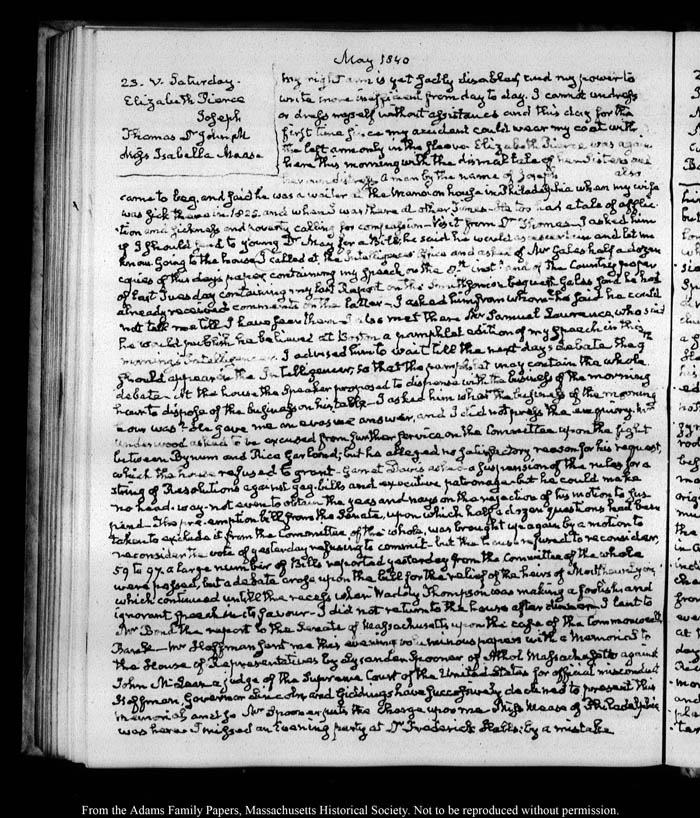 May 1840
23. V. Saturday.
Elizabeth Pierce
Joseph
Thomas Dr John M
Miss Isabella Mease
My right arm is yet sadly disabled and my power to
write more inefficient from day to day. I cannot undress
or dress myself without assistance and this day for the
first time since my accident could wear my coat with
the left arm only in the sleeve Elizabeth Pierce was again
here this morning with the dismal tale of her Sisters and
her own distress A man by the name of Joseph also
came to beg, and said he was a waiter at the Mansion house in Philadelphia when my wife
was sick there in 1825. and when I was there at other times. He too had a tale of afflic-
tion and sickness and poverty calling for compassion—Visit from Dr Thomas—I asked him
if I should send to young Dr May for a Bill; he said he would and let me
know Going to the house, I called at the Intelligencer Office and asked of Mr Gales half a dozen
copies of this day's paper containing my speech on the inst and of the Country paper
of last Tuesday containing my last Report on the Smithsonian bequest. Gales said he had
already received comments on the latter—I asked him from whom—he said he could
not tell me till I have seen them—I also met there Mr Samuel Lawrence, who said
he would publish he believed at Boston a pamphlet edition of my speech in this
morning's Intelligencer. I advised him to wait till the next day's debate
should appear in the Intelligencer, so that the pamphlet may contain the whole
debate—At the house the Speaker proposed to dispense with the business of the morning
hour to dispose of the business on his table—I asked him what the business of the morning
hour was? He gave me an evasive answer, and I did not press the enquiry.
Underwood asked to be excused from further service on the Committee upon the fight
between Bynum and Rice Garland; but he alleged no satisfactory reason for his request,
which the house refused to grant—Garret Davis asked a suspension of the rules for a
string of Resolutions against gag-bills and executive patronage—but he could make
no head-way—not even to obtain the yeas and nays on the rejection of his motion to sus-
pend—The pre-emption bill from the Senate, upon which half a dozen questions had been
taken to exclude it from the Committee of the whole, was brought up again by a motion to
reconsider the vote of yesterday refusing to commit—but the house refused to reconsider,
59 to 97. a large number of Bills reported yesterday from the Committee of the whole
were passed, but a debate arose upon the bill for the relief of the heirs of
which continued untill the recess when Waddy Thompson was making a foolish and
ignorant speech in its favour—I did not return to the house after dinner—I sent to
Mr Bond the report to the Senate of Massachusetts upon the case of the Commonwealth
Bank—Mr Hoffman sent me this evening voluminous papers with a Memorial to
the House of Representatives by Lysander Spooner of Athol Massachusetts against
John McLean a judge of the Supreme Court of the United States for official misconduct
Hoffman, Governor Lincoln and Giddings have successively declined to present this
memorial and so Mr Spooner puts the charge upon me Miss Mease of Philadelphia
was here. I missed an evening party at Dr Frederick Halls; by a mistake
From the Adams Family Papers, Massachusetts Historical Society. Not to be reproduced without permission.